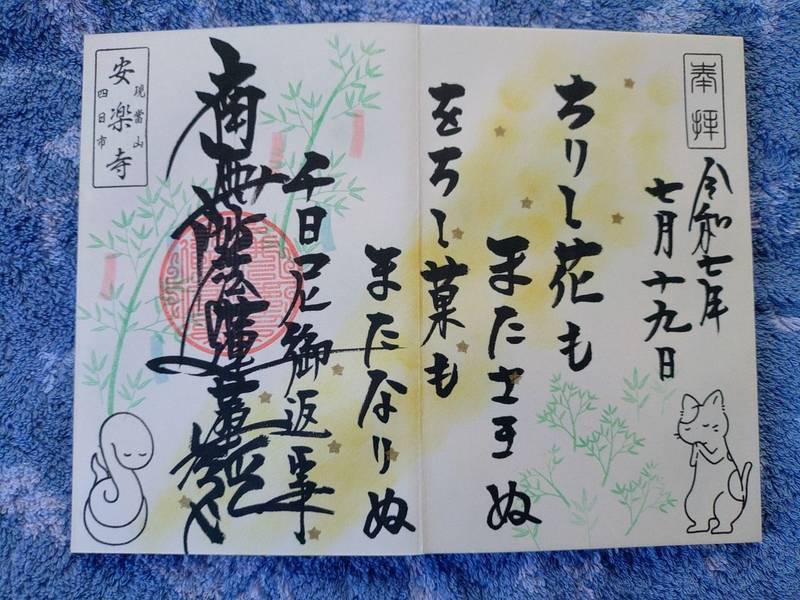 奉拝
令和七年
七月十九日
ちりし花も
またさきぬ
をちし菓も
またなりぬ
千日尼御返事
南無妙法蓮華経
現當山
安楽寺
四日市